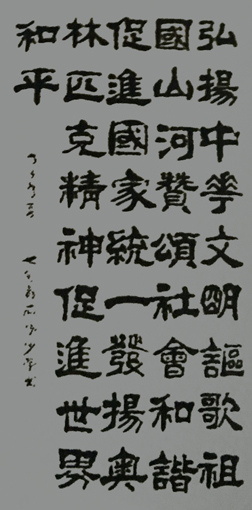 弘揚中華文明謳歌祖
國山河贊頌社會和諧
促進國家統一發揚奧
林匹克精神促進世界
和平